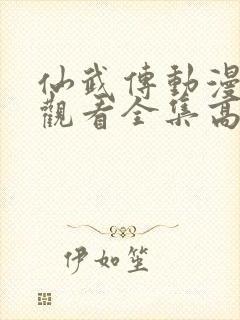 仙武傳動漫
觀看全集高
伊如笙